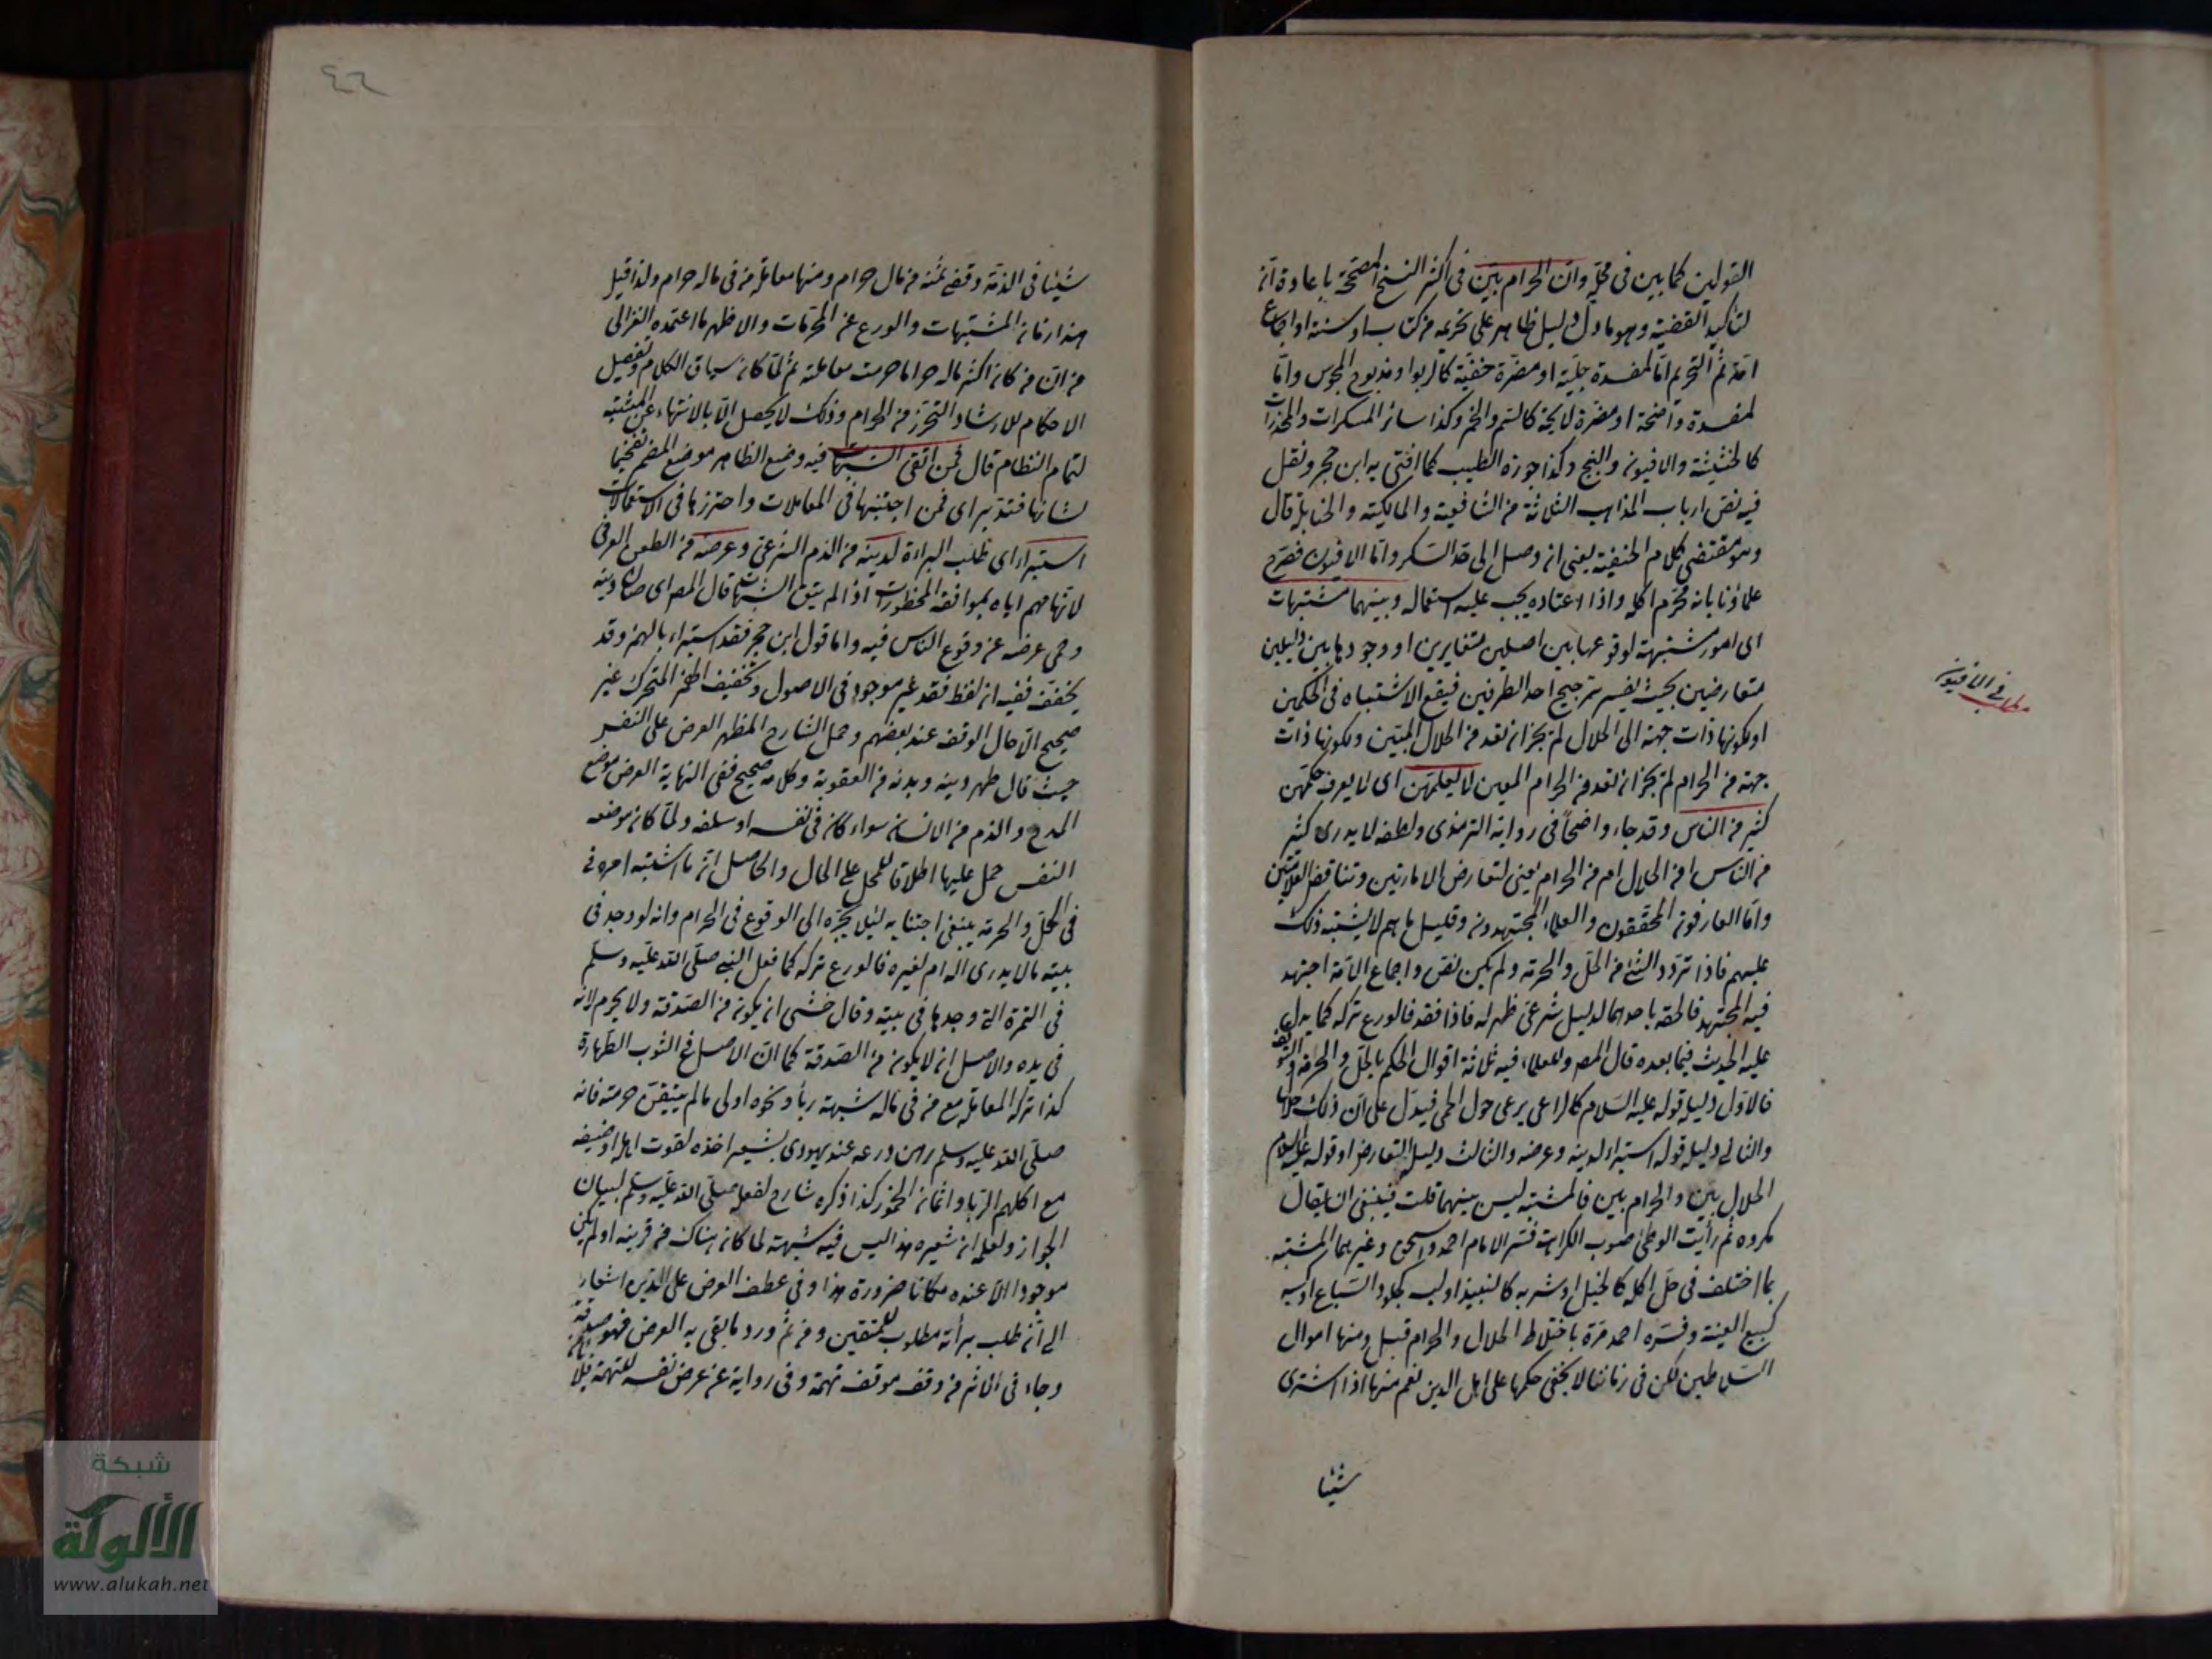 القولين كما بين في محله وان الحرام بين في اكثر النسخ المصححة باعادة ان
لتاكيد القضية وهو ما دل دليل ظاهر على تحريمه من كتاب او سنة او اجماع
امة ثم التحريم اما لمفسدة جلية او مضرة خفية كالربوا ومذبوح المجوس واما
لمفسدة واضحة او مضرة لايحة كالسم والخمر وكذا سائر المسكرات والمخدرات
كالحشيشة والافيون والبنج وكذا جوزة الطيب كما افتى به ابن حجر ونقل
فيه نص ارباب المذاهب الثلاثة من الشافعية والمالكية والحنابلة قال
وهو مقتضى كلام الحنفية يعني ان وصل الى حد السكر واما الافيون فصرح
علماؤنا بانه محرم اكله واذا اعتاده يجب عليه استعماله وبينهما مشتبهات
اى امور مشتبهة لوقوعها بين اصلين متغايرين او وجودها بين دليلين
متعارضين بحيث يفسر ترجيح احد الطرفين فيقع الاشتباه في الحكمين
او لكونها ذات جهة الى الحلال لم يجز ان تعد من الحلال المبين ولكونها ذات
جهة من الحرام لم يجز ان تعد من الحرام المعين لا يعلمهن اى لا يعرف حكمهن
كثير من الناس وقد جاء واضحا في رواية الترمذى ولفظه لا يدرى كثير
من الناس امن الحلال ام من الحرام يعني لتعارض الامارتين وتناقض العلامتين
واما العارفون المحققون والعلماء المجتهدون وقليل ما هم لا يشتبه ذلك
عليهم فاذا تردد الشئ من الحل والحرمة ولم يكن نص واجماع الامة اجتهد
فيه المجتهد فالحقه باحدهما لدليل شرعى ظهر له فاذا فقد فالورع تركه كما يدل
عليه الحديث فيما بعده قال المص وللعلماء فيه ثلاثة اقوال الحكم بالحل والحرمة والتوقف
فالاول دليله قوله عليه السلام كالراعى يرعى حول الحمى فيدل على ان ذلك حلالها
والثاني دليله قوله استبراء لدينه وعرضه والثالث دليل التعارض او قوله عليه السلام
الحلال بين والحرام بين فالمشتبه ليس بينهما قلت فينبغي ان يقال
مكروه ثم رأيت الوطئ صوب الكراهة فسر الامام احمد واسحق وغيرهما المشتبه
بما اختلف في حل اكله كالخيل او شربه كالنبيذ او لبسه كجلود السباع او كسبه
كبيع العينة وفسره احمد مرة باختلاط الحلال والحرام قبل ومنها اموال
السلاطين لكن في زماننا لا يخفى حكمها على اهل الدين نعم منها اذا اشترى
شيئا
مطلب في الافيون
٤٦
شيئا في الذمة وقضى ثمنه من مال حرام ومنها معاملة من في ماله حرام ولذا قيل
هذا زمان المشتبهات والورع عن المحرمات والاظهر ما اعتمده الغزالى
من ان من كان اكثر ماله حراما حرمت معاملته ثم لما كان سياق الكلام وتفصيل
الاحكام للارشاد التحرز من الحرام وذلك لا يحصل الا بالانتهاء عن المشتبه
لتمام النظام قال فمن اتقى الشبهات فيه وضع الظاهر موضع المضمر تفخيما
لشانها فتدبر اى فمن اجتنبها في المعاملات واحترزها في الاستعمالات
استبراء اى طلب البراءة لدينه من الذم الشرعى وعرضه من الطعن العرفي
لاتهامهم اياه بموافقة المحظورات اذا لم يتق الشبهات قال المص اى صان دينه
وحمى عرضه عن وقوع الناس فيه واما قول ابن حجر فقد استبراء بالهمز وقد
يخفف ففيه ان لفظ فقد غير موجود في الاصول وتخفيف الهمز المتحرك غير
صحيح الا حال الوقف عند بعضهم وحمل الشارح المظهر العرض على النفس
حيث قال طهر دينه وبدنه من العقوبة وكلامه صحيح ففي النهاية العرض موضع
المدح والذم من الانسان سواء كان في نفسه او سلفه ولما كان موضعه
النفس حمل عليها اطلاقا للمحل على الحال والحاصل ان ما اشتبه امره في
في الحل والحرمة ينبغي اجتنابه لئلا يجره الى الوقوع في الحرام وانه لو وجد في
بيته مالا يدرى اله ام لغيره فالورع تركه كما فعل النبي صلى الله عليه وسلم
في التمرة التي وجدها في بيته وقال خشى ان يكون من الصدقة ولا يحرم لانه
في يده والاصل ان لا يكون من الصدقة كما ان الاصل في الثوب الطهارة
كذا ترك المعاملة مع من في ماله شبهة ربا ونحوه اولى ما لم يتيقن حرمته فانه
صلى الله عليه وسلم رهن درعه عند يهودى بشعير اخذه لقوت اهله او ضيفه
مع اكلهم الربا واثمان الخمور كذا ذكره شارح لفعله صلى الله عليه وسلم لبيان
الجواز ولعله ان شعيره هذا ليس فيه شبهة لما كان هناك من قرينة او لم يكن
موجودا الا عنده مكانا ضرورة هذا وفي عطف العرض على الدين اشعار
الى ان طلب برأته مطلوب للمتقين ومن ثم ورد ما يقى به العرض فهو صدقة
وجاء في الاثر من وقف موقف تهمة وفي رواية من عرض نفسه للتهمة فلا
شبكة
الألوكة
www.alukah.net